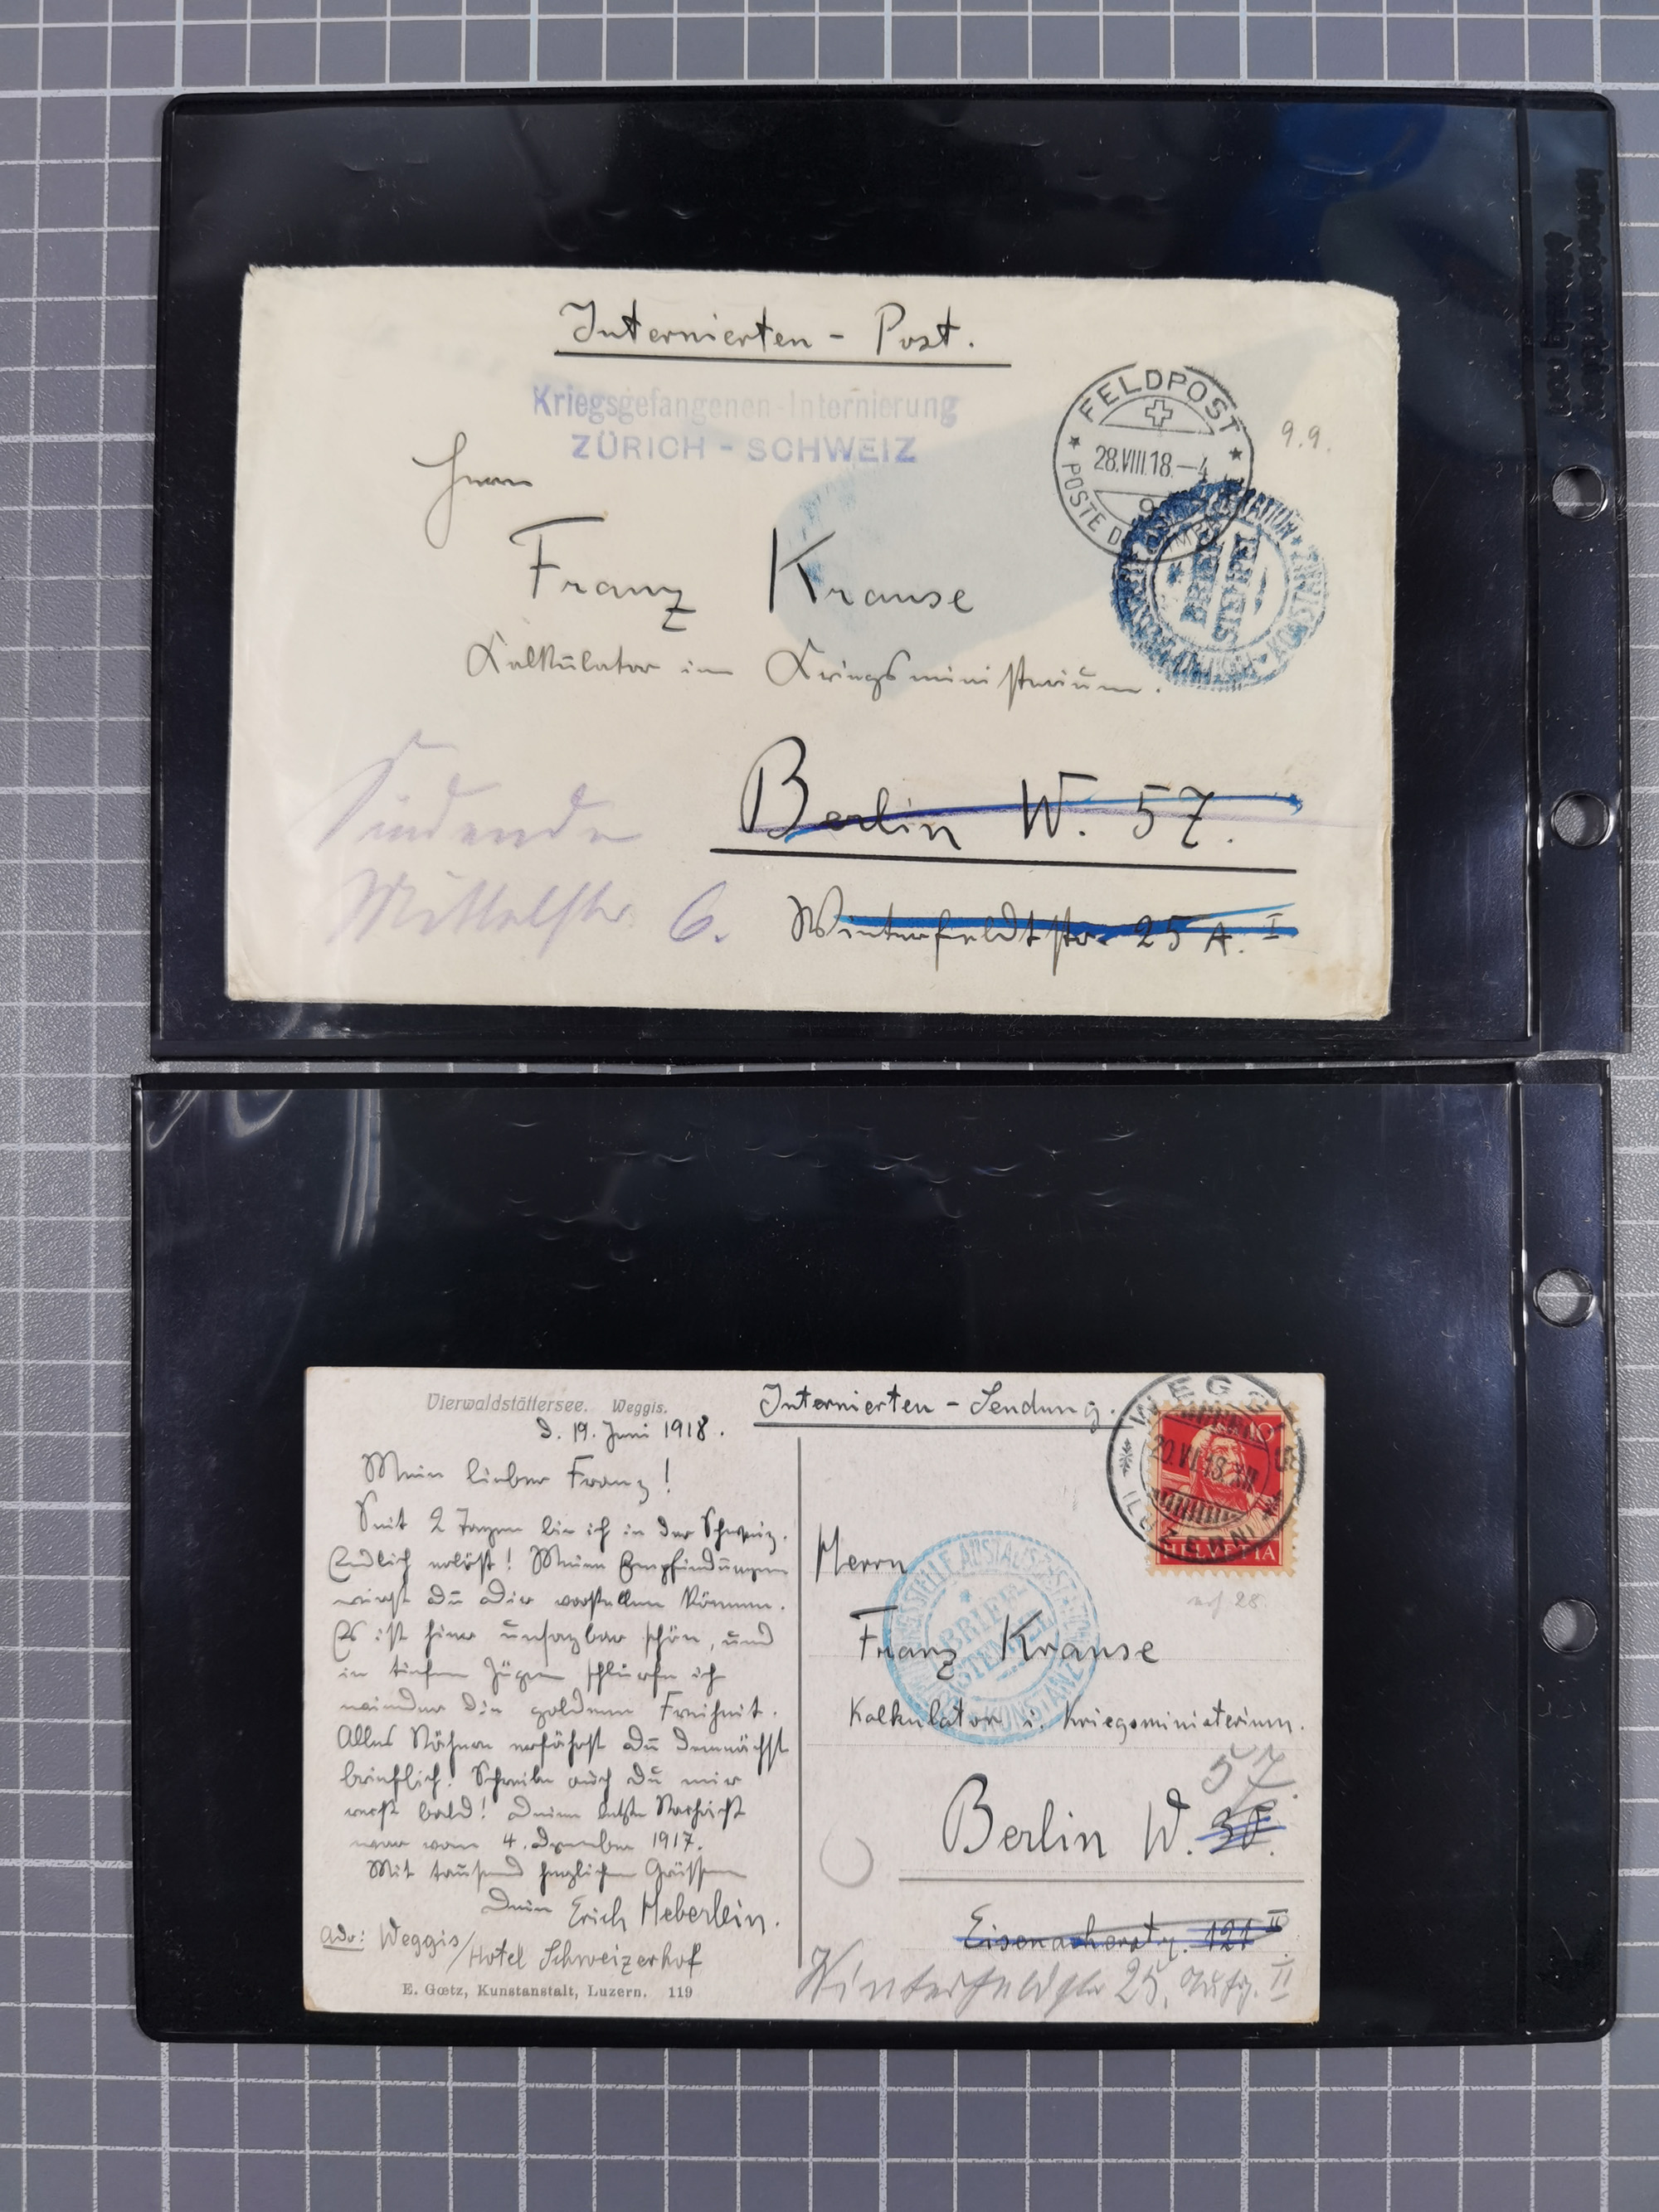 Internierten - Post.
Kriegsgefangenen-Internierung
ZÜRICH - SCHWEIZ
FELDPOST
28.VIII.18.–4
9
POSTE DE CAMP
9.9.
BRIEF
STEMPEL
KONSTANZ
Herrn
Franz Krause
Kalkulator im Kriegsministerium.
Berlin W. 57.
Winterfeldtstr. 25 A. I
Mittelstr. 6.
Vierwaldstättersee. Weggis.
d. 19. Juni 1918.
Mein lieber Franz!
Seit 2 Tagen bin ich in der Schweiz.
Endlich erlöst! Meine Empfindungen
wirst Du Dir vorstellen können.
Es ist hier unsagbar schön, und
in tiefen Zügen schlürfe ich
wieder die goldene Freiheit.
Alles Nähere erfährst Du demnächst
brieflich. Schreibe auch Du mir
recht bald! Deine letzte Nachricht
war vom 4. Dezember 1917.
Mit tausend herzlichen Grüssen
Dein Erich Heberlein.
Adr: Weggis/Hotel Schweizerhof
E. Gœtz, Kunstanstalt, Luzern. 119
Internierten - Sendung.
WEGGIS
20.VI.18.XII
(LUZERN)
10
HELVETIA
28.
Herrn
AUSTAUSCHSTATION
BRIEF
STEMPEL
KONSTANZ
Franz Krause
Kalkulator i. Kriegsministerium.
57.
Berlin W. 30.
Eisenacherstr. 121 II
Winterfeldstr 25, Aufg. II